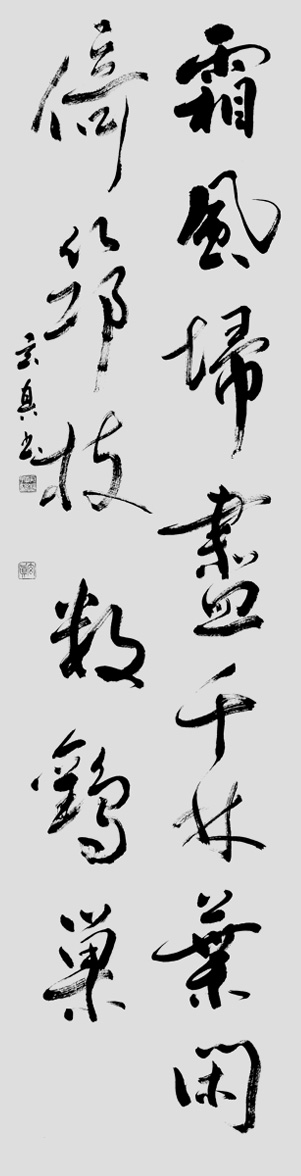 霜風埽盡千林葉閑
倚筇枝數鸛巢
玄真书